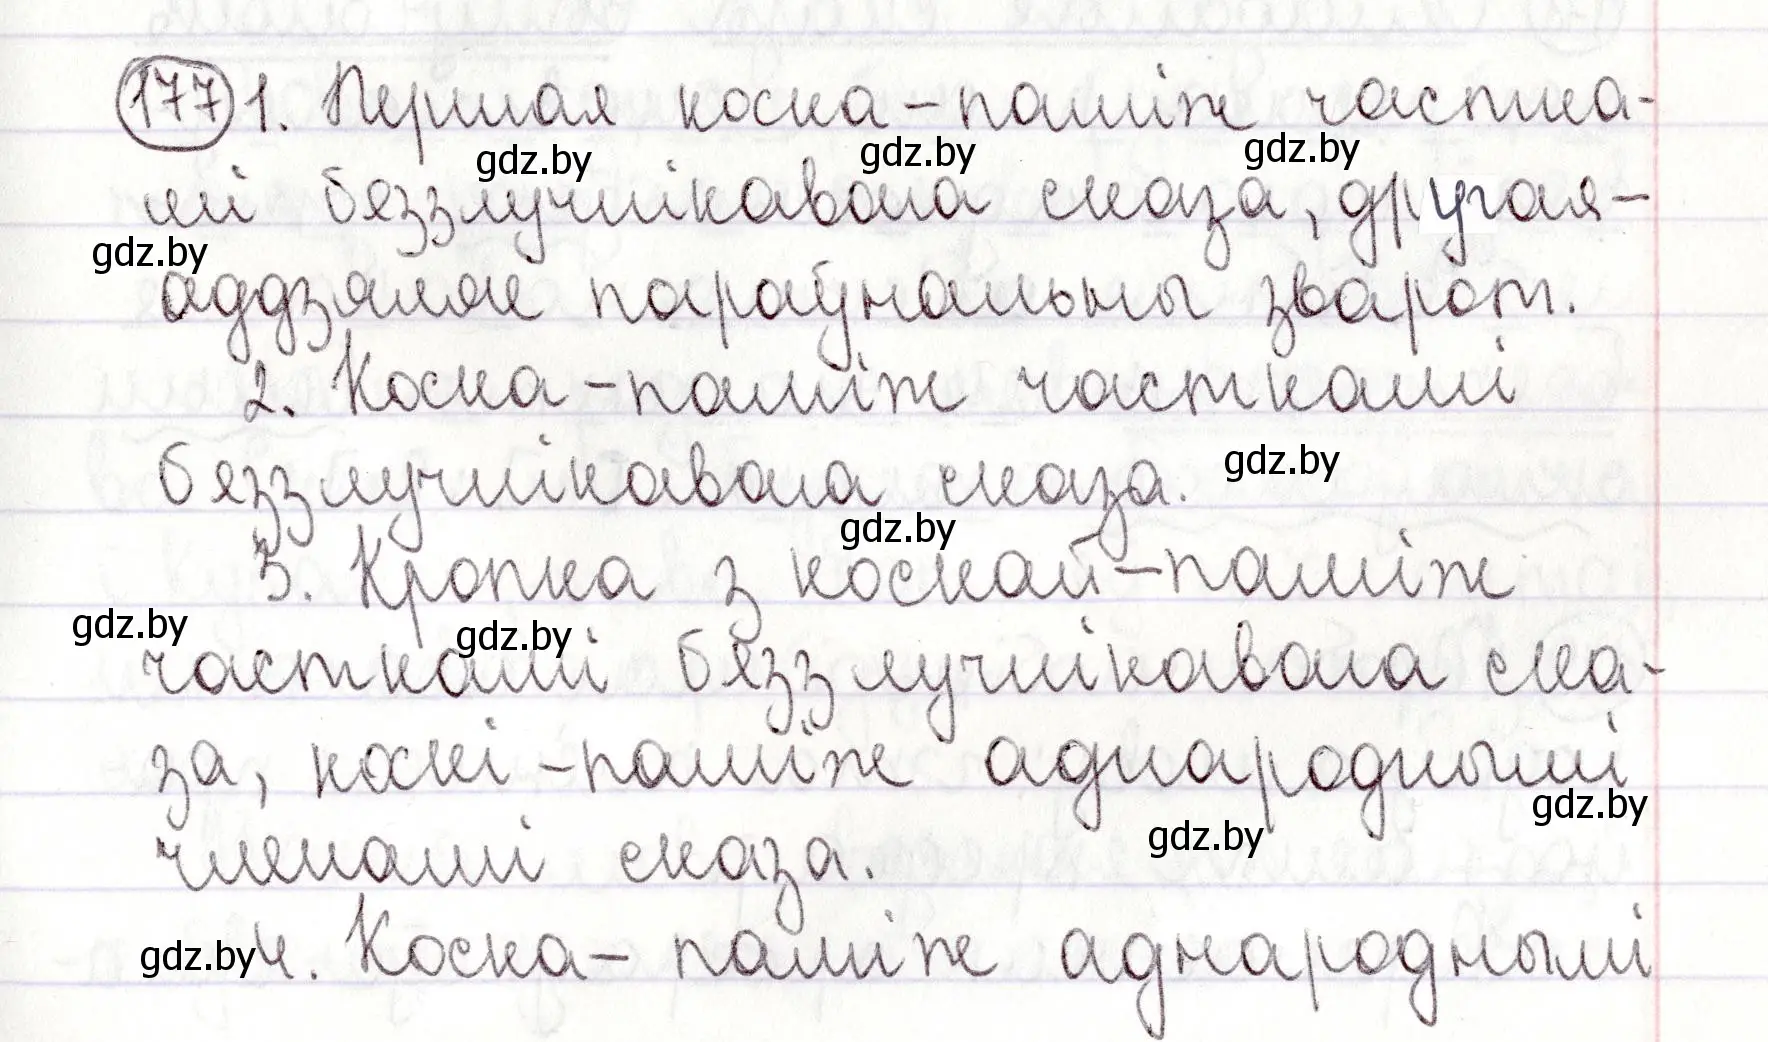 177 1. Першая коска – паміж частка-
gdz.by gdz.by gdz.by
мі бяззлучнікавага сказа, другая –
gdz.by
аддзяляе параўнальны зварот.
2. Коска – паміж часткамі
бяззлучнікавага сказа.
gdz.by
gdz.by
3. Кропка з коскай – паміж
gdz.by gdz.by
часткамі бяззлучнікавага ска-
за, коскі – паміж аднароднымі
gdz.by gdz.by
членамі сказа.
gdz.by 4. Коска – паміж аднароднымі